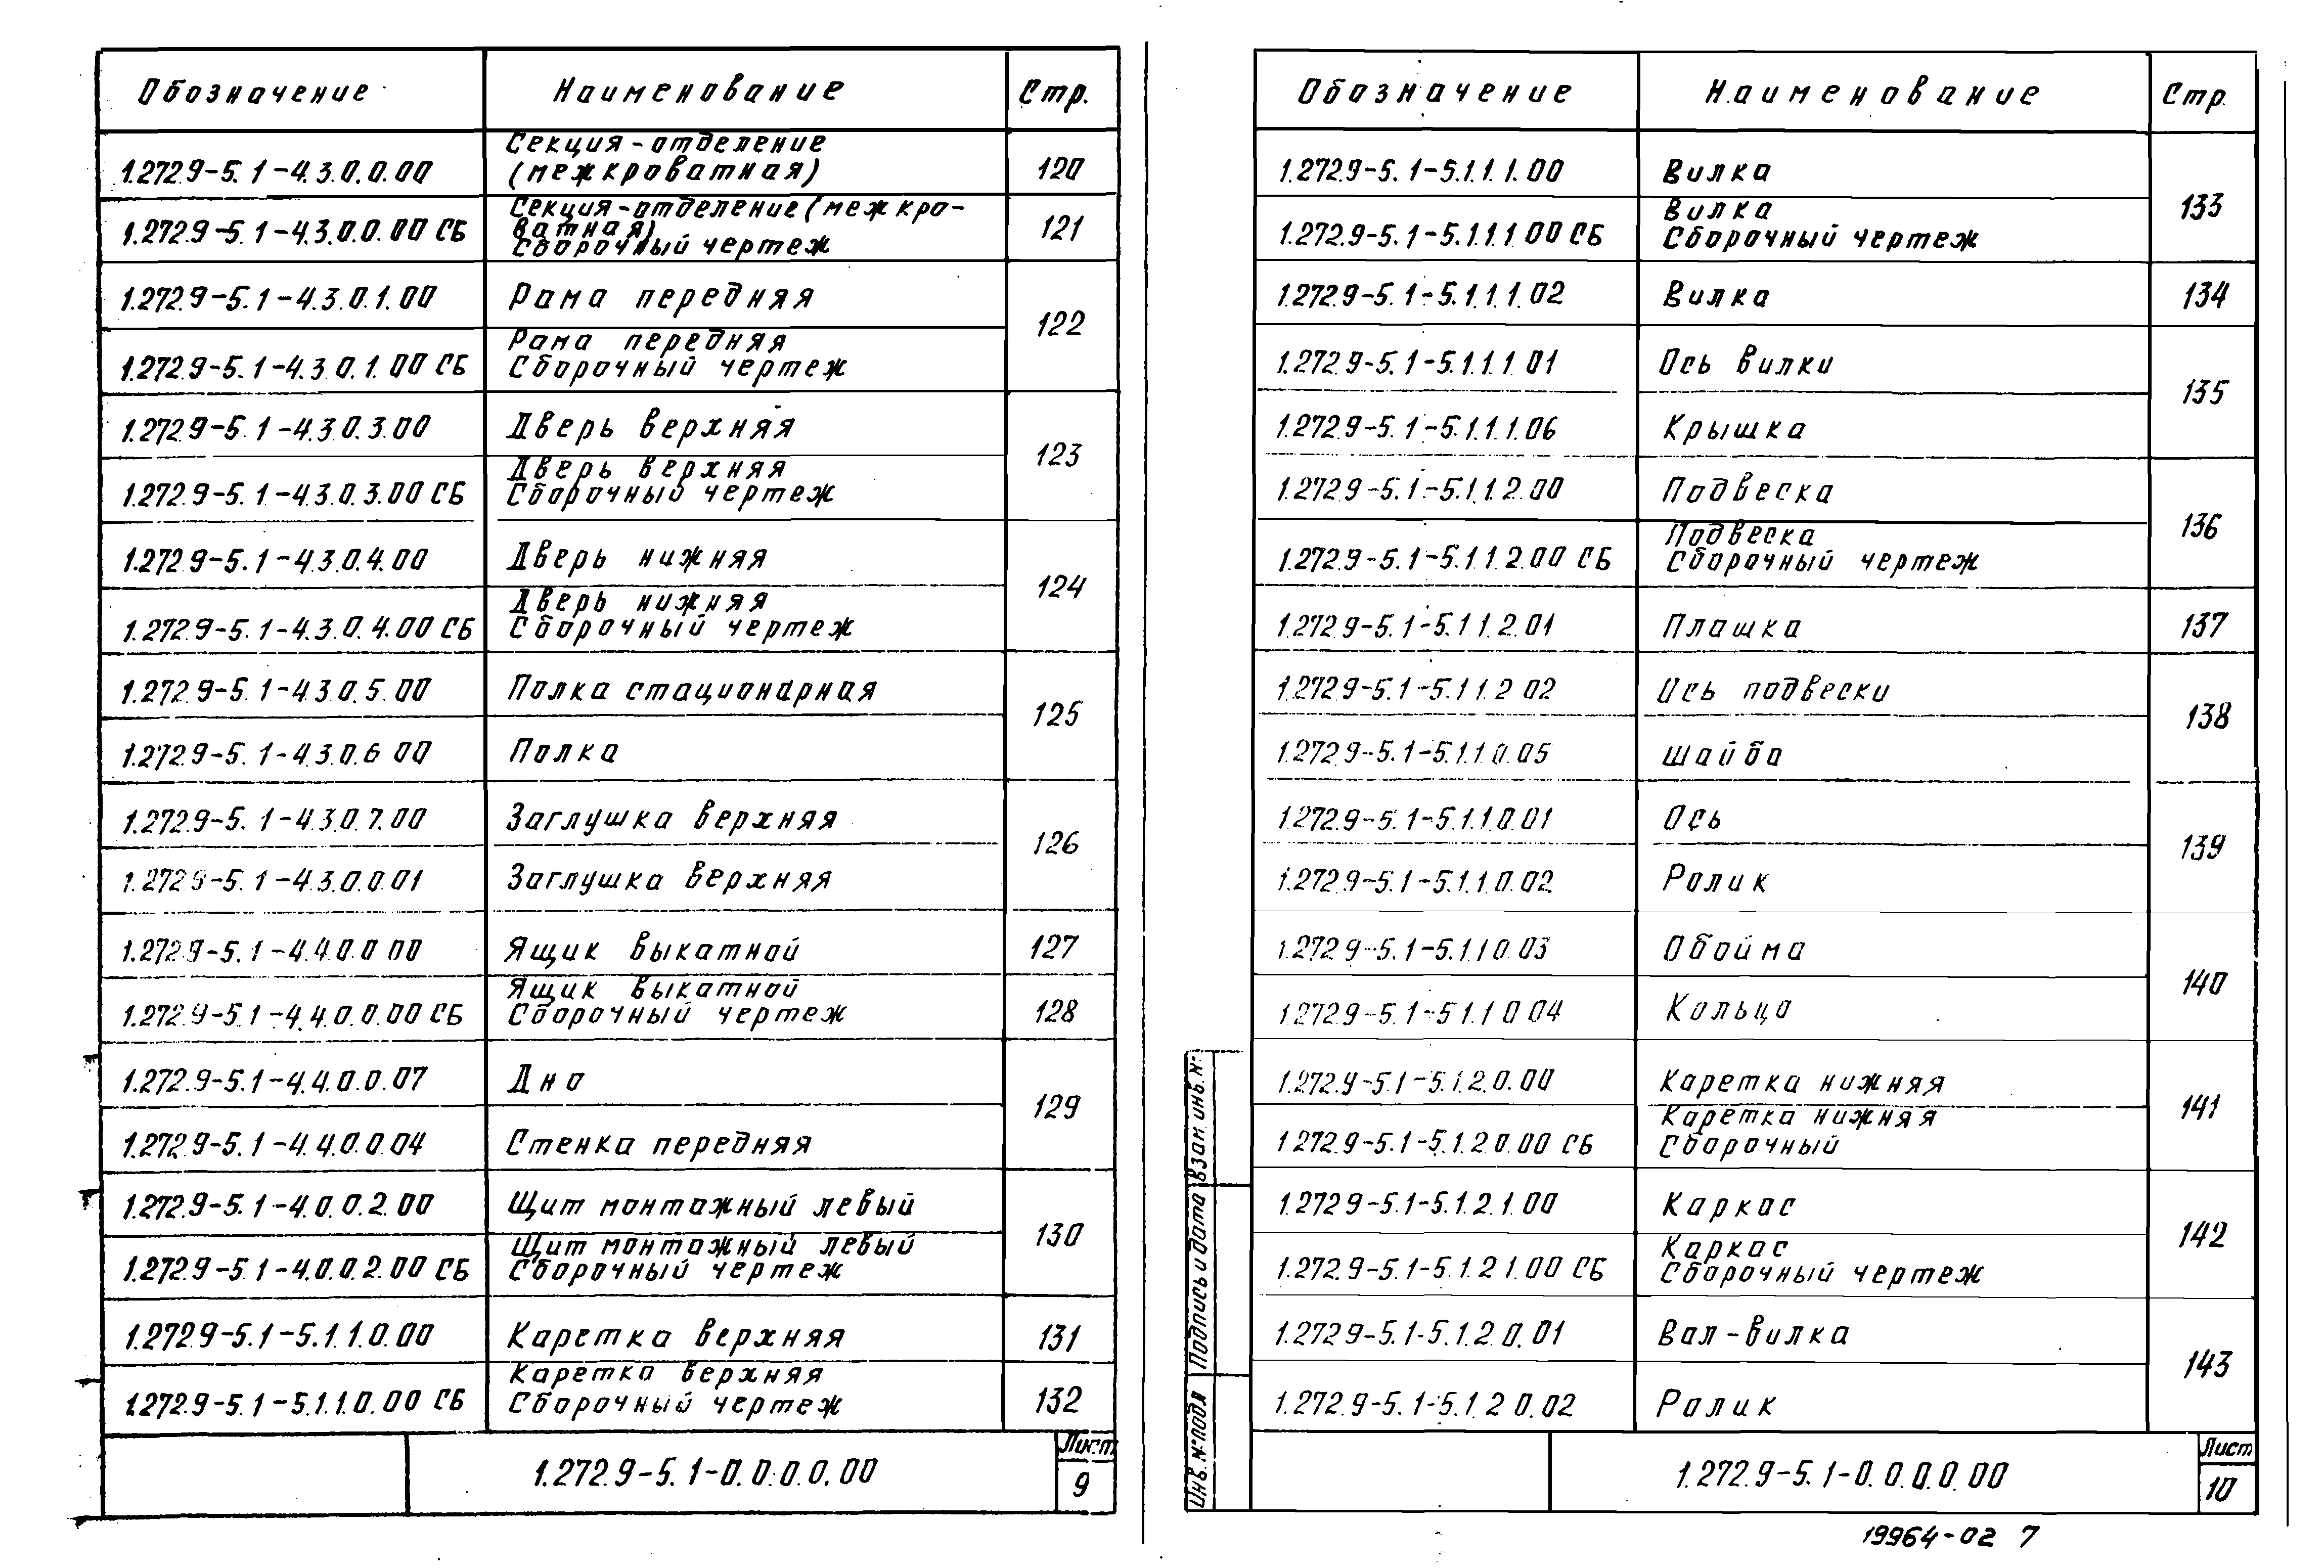 Обозначение Наименование Стр.
1.272.9-5.1-4.3.0.0.00 Секция-отделение
(межкроватная) 120
1.272.9-5.1-4.3.0.0.00 СБ Секция-отделение (межкро-
ватная)
Сборочный чертеж 121
1.272.9-5.1-4.3.0.1.00 Рама передняя 122
1.272.9-5.1-4.3.0.1.00 СБ Рама передняя
Сборочный чертеж
1.272.9-5.1-4.3.0.3.00 Дверь верхняя 123
1.272.9-5.1-4.3.0.3.00 СБ Дверь верхняя
Сборочный чертеж
1.272.9-5.1-4.3.0.4.00 Дверь нижняя 124
1.272.9-5.1-4.3.0.4.00 СБ Дверь нижняя
Сборочный чертеж
1.272.9-5.1-4.3.0.5.00 Полка стационарная 125
1.272.9-5.1-4.3.0.6 00 Полка
1.272.9-5.1-4.3.0.7.00 Заглушка верхняя 126
1.272.9-5.1-4.3.0.0.01 Заглушка верхняя
1.272.9-5.1-4.4.0.0 00 Ящик выкатной 127
1.272.9-5.1-4.4.0.0.00 СБ Ящик выкатной
Сборочный чертеж 128
1.272.9-5.1-4.4.0.0.07 Дно 129
1.272.9-5.1-4.4.0.0.04 Стенка передняя
1.272.9-5.1-4.0.0.2.00 Щит монтажный левый 130
1.272.9-5.1-4.0.0.2.00 СБ Щит монтажный левый
Сборочный чертеж
1.272.9-5.1-5.1.1.0.00 Каретка верхняя 131
1.272.9-5.1-5.1.1.0.00 СБ Каретка верхняя
Сборочный чертеж 132
1.272.9-5.1-0.0.0.0.00
Лист
9
Обозначение Наименование Стр.
1.272.9-5.1-5.1.1.1.00 Вилка 133
1.272.9-5.1-5.1.1.1.00 СБ Вилка
Сборочный чертеж
1.272.9-5.1-5.1.1.1.02 Вилка 134
1.272.9-5.1-5.1.1.1.01 Ось вилки 135
1.272.9-5.1-5.1.1.1.06 Крышка
1.272.9-5.1-5.1.1.2.00 Подвеска 136
1.272.9-5.1-5.1.1.2.00 СБ Подвеска
Сборочный чертеж
1.272.9-5.1-5.1.1.2.01 Плашка 137
1.272.9-5.1-5.1.1.2 02 Ось подвески 138
1.272.9-5.1-5.1.1.0.05 Шайба
1.272.9-5.1-5.1.1.0.01 Ось 139
1.272.9-5.1-5.1.1.0.02 Ролик
1.272.9-5.1-5.1.1.0.03 Обойма 140
1.272.9-5.1-5.1.1 0 04 Кольцо
1.272.9-5.1-5.1.2.0.00 Каретка нижняя 141
1.272.9-5.1-5.1.2.0.00 СБ Каретка нижняя
Сборочный
1.272.9-5.1-5.1.2.1.00 Каркас 142
1.272.9-5.1-5.1.2.1.00 СБ Каркас
Сборочный чертеж
1.272.9-5.1-5.1.2.0.01 Вал-вилка 143
1.272.9-5.1-5.1.2 0.02 Ролик
Взам. инв. №
Подпись и дата
Инв. № подл
1.272.9-5.1-0.0.0.0.00
Лист
10
19964-02 7